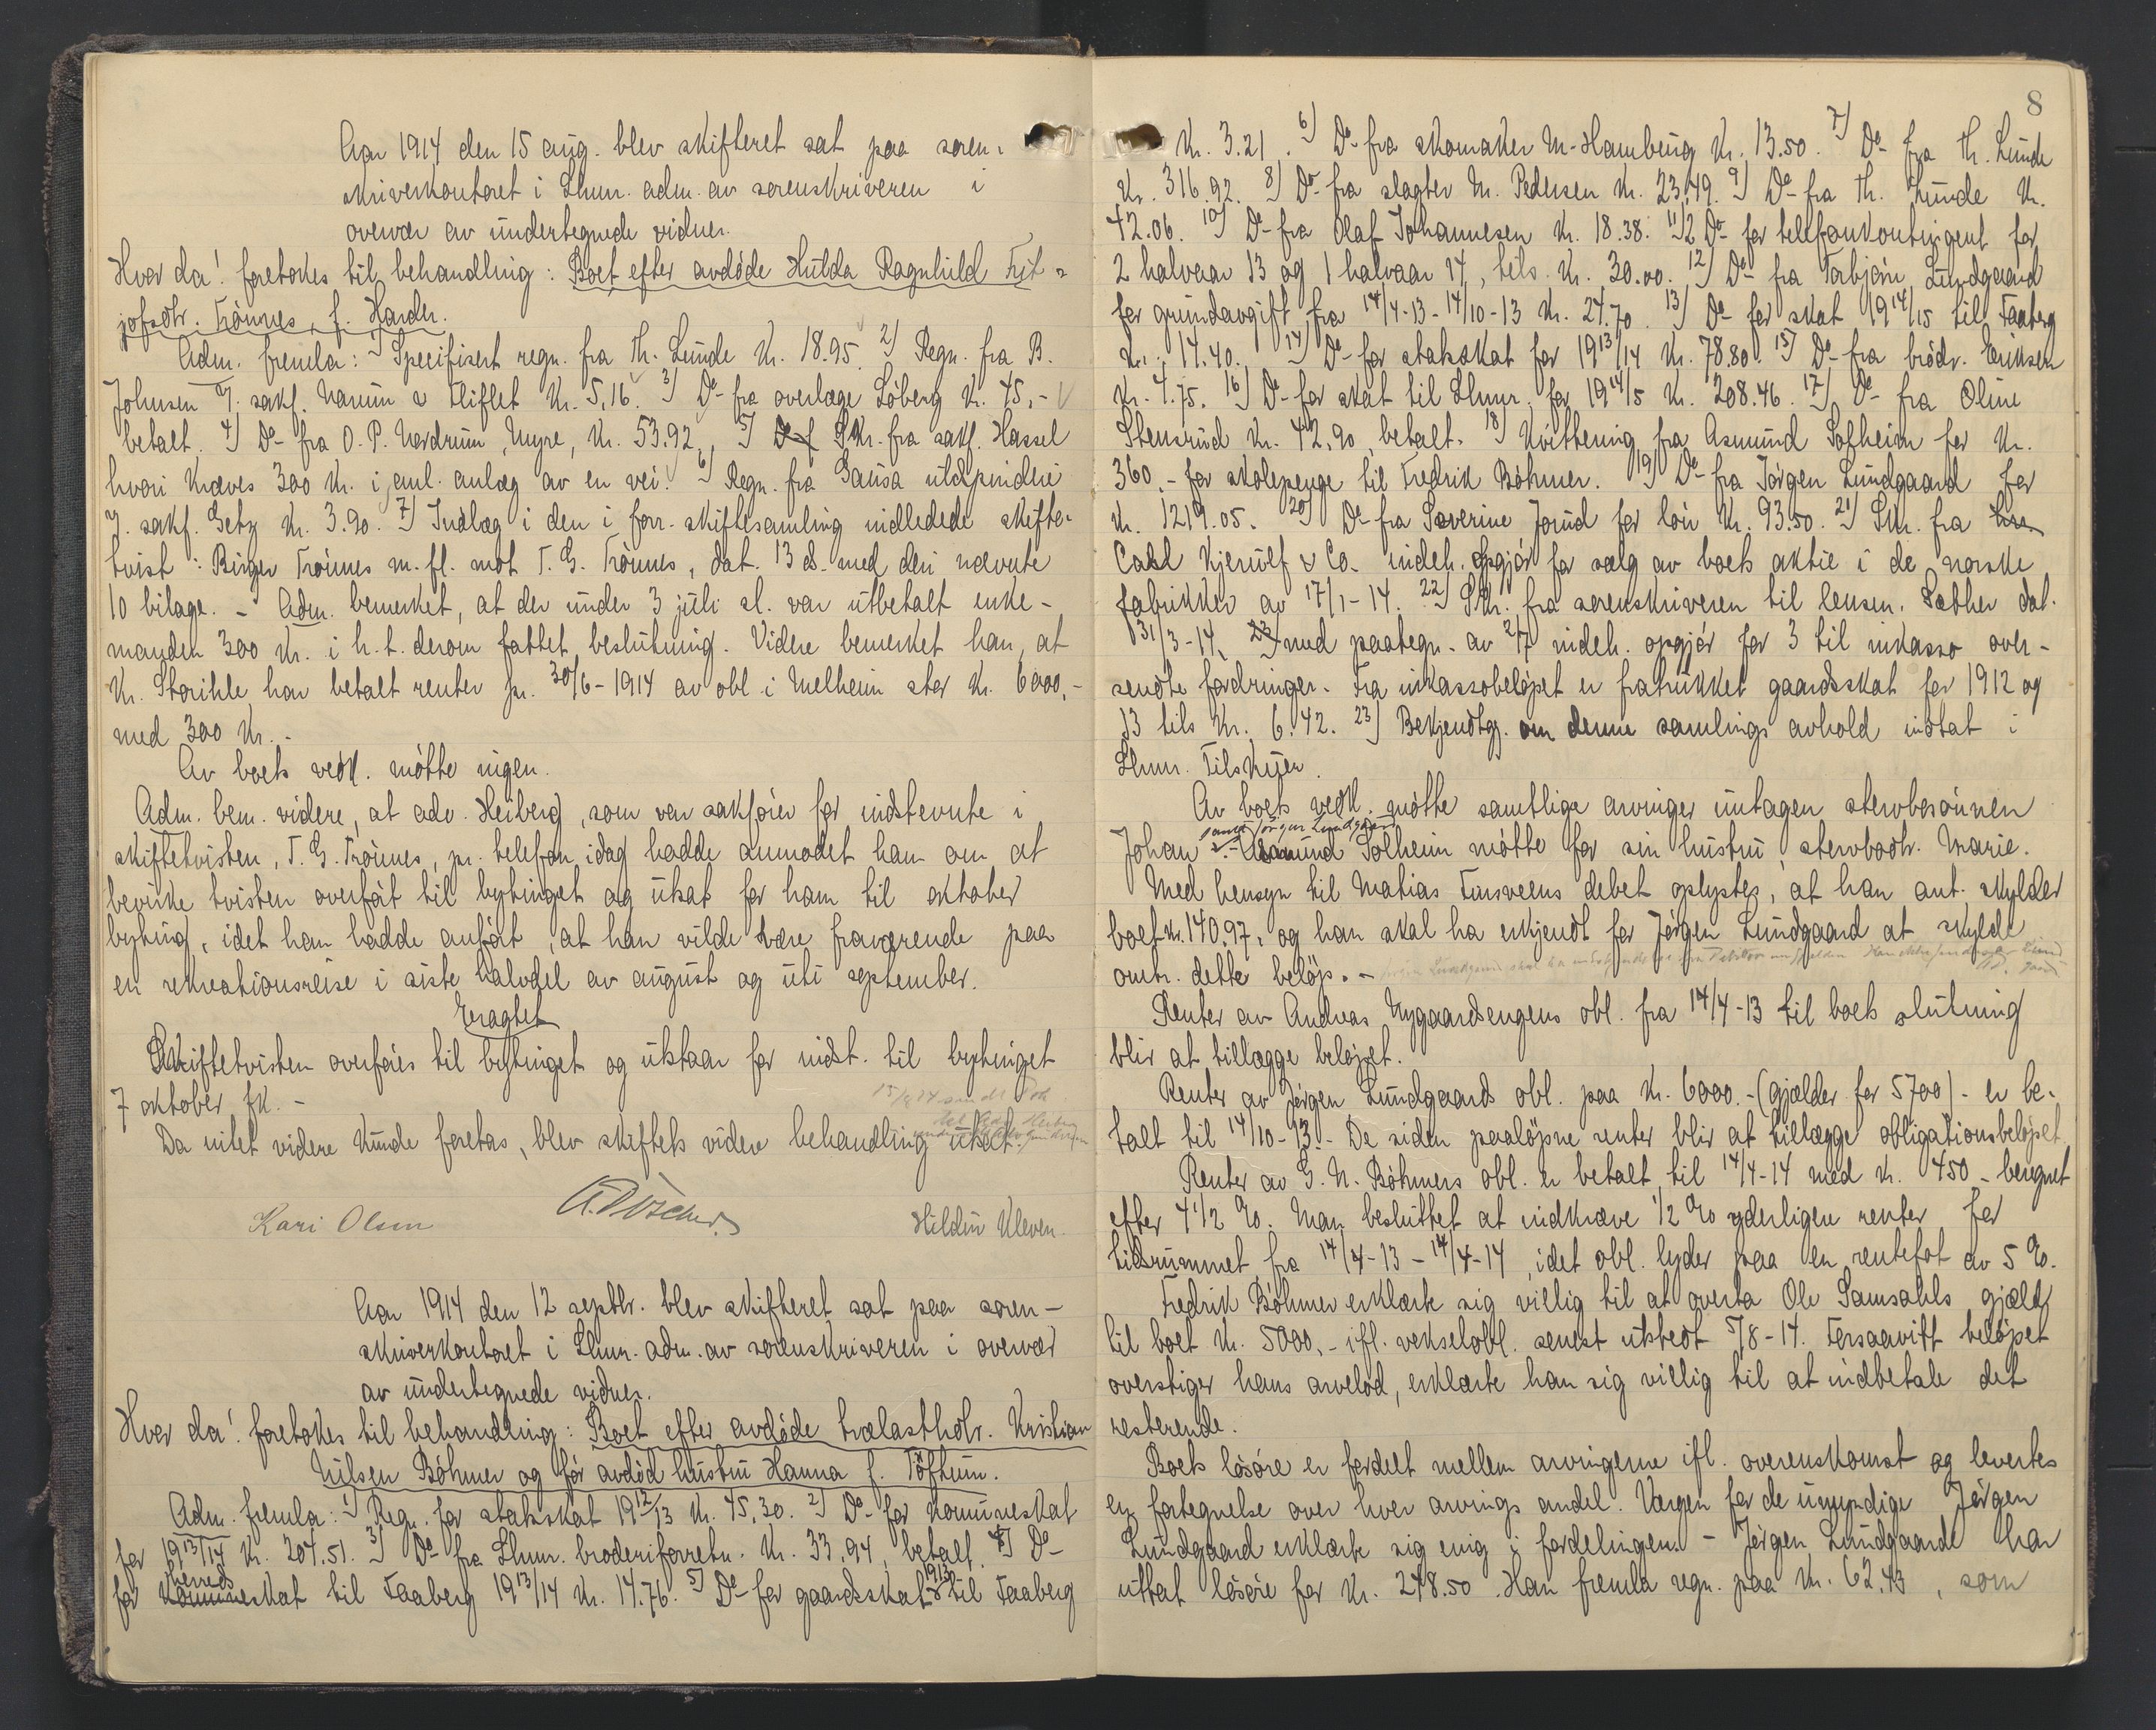 Aar 1914 den 15 aug. blev skifteret sat paa soren-
skriverkontoret i Lhmr. adm. av sorenskriveren i
overvær av undertegnede vidner.
Hvor da! foretokes til behandling: Boet efter avdøde Hulda Ragnhild Frit-
jofsdtr. Trønnes, f. Harder.
Adm. fremla: 1) Specifisert regn. fra Th. Lunde Kr. 18.95. 2) Regn. fra B.
Johnsen v. sakf. Narum & Fliflet Kr. 5,16. 3) Do- fra overlæge Løberg Kr. 45,-
betalt. 4) Do- fra O. P. Nordrum, Myre, Kr. 53.92, 5) Skr. fra sakf. Hassel
hvori kræves 300 Kr. i anl. anlæg av en vei. 6) Regn. fra Gausa uldspinderi
v. sakf. Getz Kr. 3.90. 7) Indlæg i den i forr. skiftesamling indledede skifte-
tvist: Birger Trønnes m. fl. mot T. G. Trønnes, dat. 13 ds. med deri nævnte
10 bilage. - Adm. bemerket, at der under 3 juli sl. var utbetalt enke-
manden 300 Kr. i h. t. derom fattet beslutning. Videre bemerket han, at
Kr. Storihle har betalt renter pr. 30/6-1914 av obl. i Melheim stor Kr. 6000,-
med 300 Kr. -
Av boets vedk. møtte ingen.
Adm. bem. videre, at adv. Heiberg, som var sakfører for indstevnte i
skiftetvisten, T. G. Trønnes, pr. telefon idag hadde anmodet ham om at
bevirke tvisten overført til bytinget og utsat for ham til oktober
byting, idet han hadde anført, at han vilde være fraværende paa
en rekreationsreise i siste halvdel av august og uti september.
Eragtet
Skiftetvisten overføres til bytinget og utstaar for indst. til bytinget
7 oktober fk. -
Da intet videre kunde foretas, blev skiftets videre behandling utsat.
Kari Olsen
Hildur Kleven.
Aar 1914 den 12 septbr. blev skifteret sat paa soren-
skriverkontoret i Lhmr. adm. av sorenskriveren i overvær
av undertegnede vidner.
Hvor da! foretokes til behandling: Boet efter avdøde trælasthdlr. Kristian
Nilsen Bøhmer og før avdød hustru Hanna f. Toftrum.
Adm. fremla: 1) Regn. for statsskat 1912/13 Kr. 45,30. 2) Do- for kommuneskat
for 1913/14 Kr. 204.51. 3) Do- fra Lhmr. broderiforretn. Kr. 33,94, betalt. 4) Do-
for herreds kommuneskat til Faaberg 1913/14 Kr. 14.76. 5) Do- for gaardsskat 1913 til Faaberg
8
Kr. 3.21. 6) Do- fra skomaker M. Hamburg Kr. 13.50. 7) Do- fra Th. Lunde
Kr. 316.92. 8) Do- fra slagter M. Pedersen Kr. 23,49. 9) Do- fra Th. Lunde Kr.
42.06. 10) Do- fra Olaf Johannesen Kr. 18.38. 11) 2 Do- for telefonkontingent for
2 halvaar 13 og 1 halvaar 14, tils. Kr. 30.00. 12) Do- fra Torbjørn Lundgaard
for grundavgift fra 14/4-13 - 14/10-13 Kr. 24.70. 13) Do- for skat 1914/15 til Faaberg
Kr. 14.40. 14) Do- for statsskat for 1913/14 Kr. 78.80. 15) Do- fra brødr. Eriksen
Kr. 4.75. 16) Do- for skat til Lhmr. for 1914/5 Kr. 208.46. 17) Do- fra Oline
Stensrud Kr. 42,90, betalt. 18) Kvittering fra Asmund Solheim for Kr.
360.- for skolepenge til Fredrik Bøhmer. 19) Do- fra Jørgen Lundgaard for
Kr. 1219.05. 20) Do- fra Severine Jorud for løn Kr. 93.50. 21) Skr. fra
Carl Kjerulf & Co. indeh. opgjør for salg av boets aktie i de norske
fabrikker av 17/1-14. 22) Skr. fra sorenskriveren til lensm. Sæther dat.
31/3-14, med paategn. av 2/7 indeh. opgjør for 3 til inkasso over-
sendte fordringer. Fra inkassobeløpet er fratrukket gaardsskat for 1912 og
13 tils Kr. 6.42. 23) Bekjendtgj. om denne samlings avhold indtat i
Lhmr. Tilskuer.
Av boets vedk. møtte samtlige arvinger untagen stervbosønnen
Johan samt Jørgen Lundgaard. - Asmund Solheim møtte for sin hustru, stervbodtr. Marie.
Med hensyn til Matias Fursveens debet oplystes, at han ant. skylder
boet Kr. 140.97, og han skal ha erkjendt for Jørgen Lundgaard at skylde
omtr. dette beløp. -
Renter av Andreas Nygaardsengens obl. fra 14/4-13 til boets slutning
blir at tillægge beløpet.
Renter av Jørgen Lundgaards obl. paa Kr. 6000.- (gjælder for 5700) - er be-
talt til 14/10-13. - De siden paaløpne renter blir at tillægge obligationsbeløpet.
Renter av G. N. Bøhmers obl. er betalt til 14/4-14 med Kr. 450 - beregnet
efter 4 1/2 %. Man besluttet at indkræve 1/2 % yderligere renter for
tidsrummet fra 14/4-13 - 14/4-14, idet obl. lyder paa en rentefot av 5 %.
Fredrik Bøhmer erklærte sig villig til at overta Ole Samsahls gjæld
til boet Kr. 5000,- ifl. vekselobl. senest utstedt 5/8-14. Forsaavitt beløpet
overstiger hans arvelod, erklærte han sig villig til at indbetale det
resterende.
Boets løsøre er fordelt mellem arvingerne ifl. overenskomst og levertes
en fortegnelse over hver arvings andel. Værgen for de umyndige Jørgen
Lundgaard erklærte sig enig i fordelingen. - Jørgen Lundgaard har
uttat løsøre for Kr. 248.50. Han fremla regn. paa Kr. 62,43, som